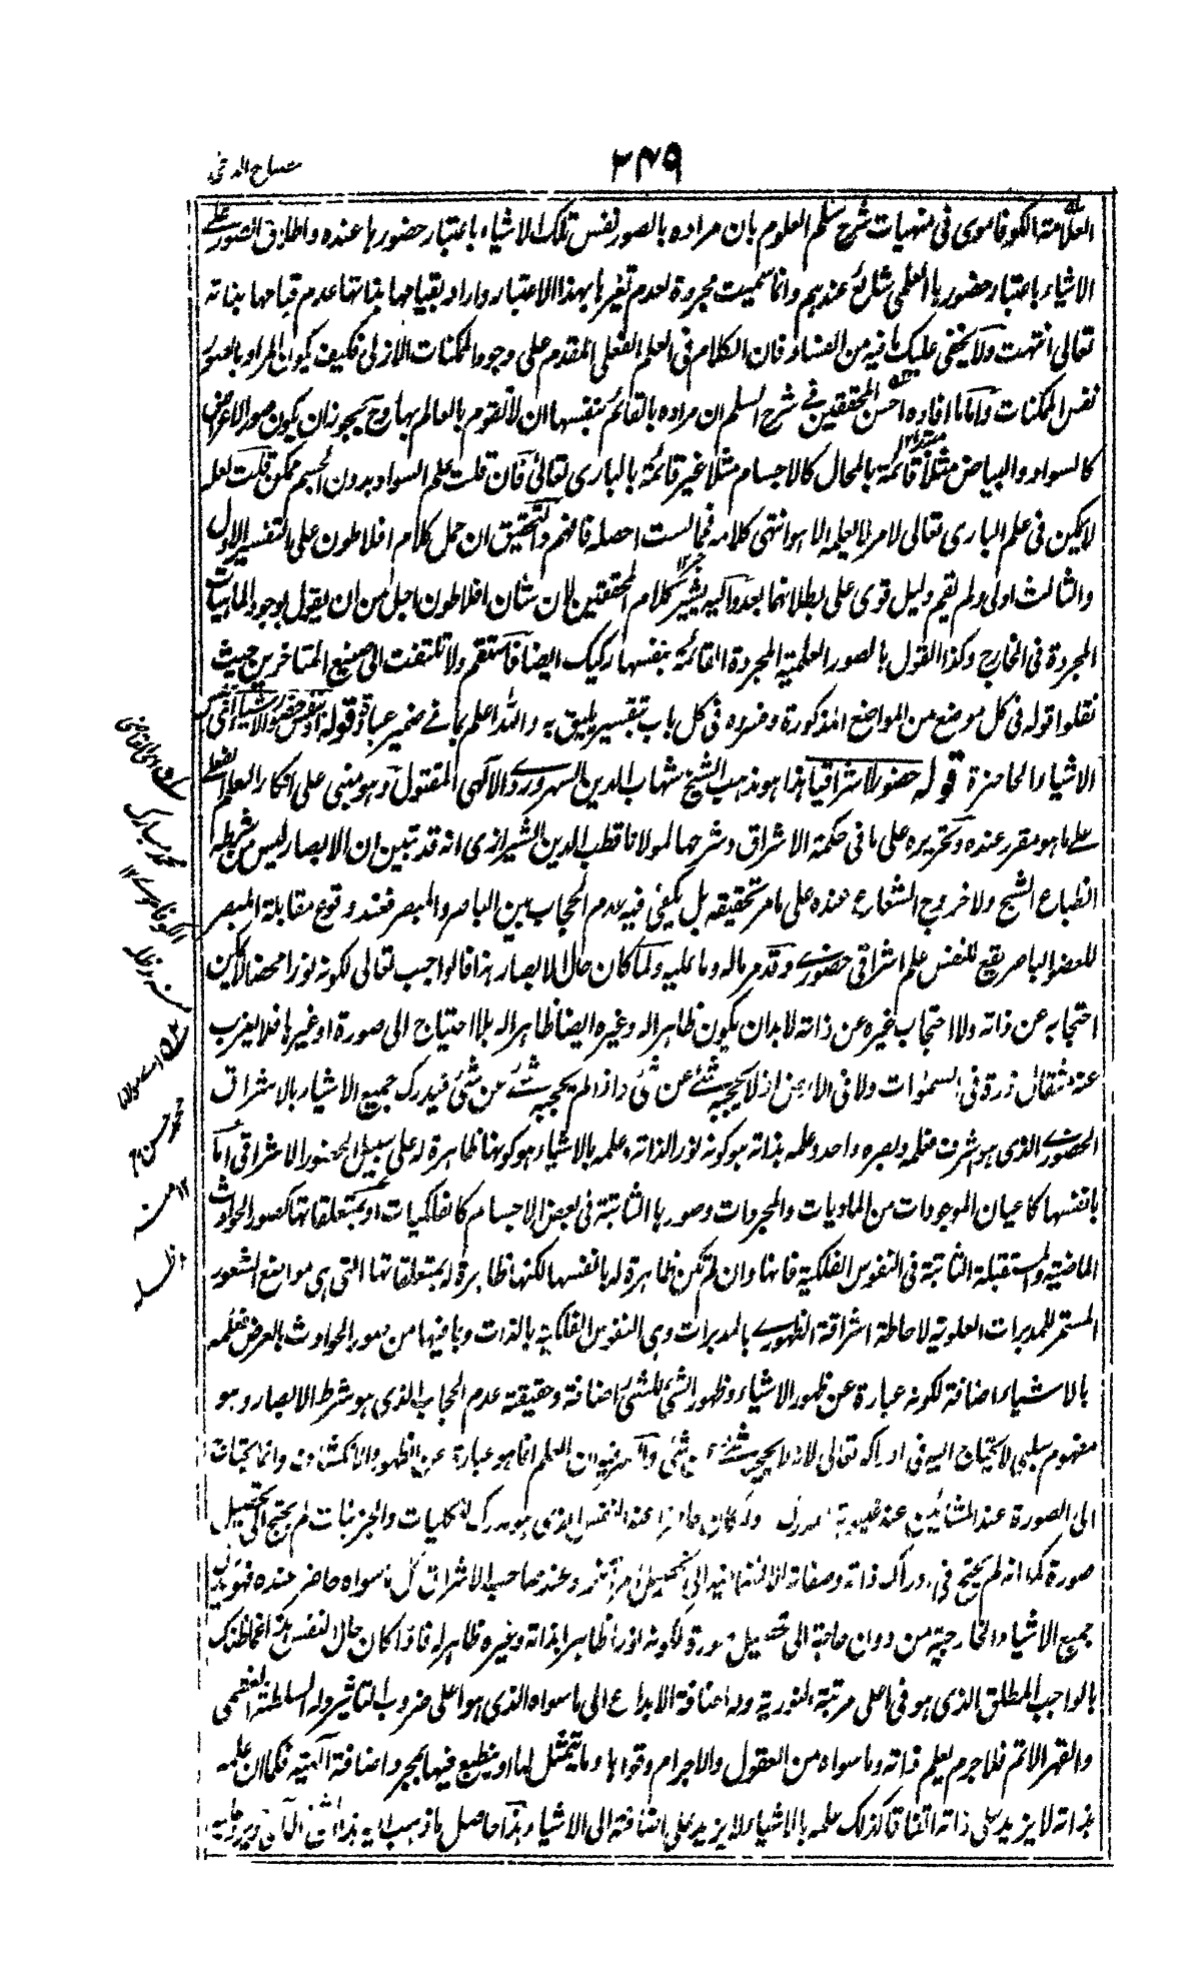 ٣٤٩
مصباح الدجى
العلامة الكوفاموى فى منهيات شرح سلم العلوم بان مراده بالصور نفس تلك الاشياء باعتبار حضورها عنده واطلاق الصور على
الاشياء باعتبار حضورها العلمى شائع عندهم وانما سميت مجردة لعدم تغيرها بهذا الاعتبار واراد بقيامها بذاتها عدم قيامها بذاته
تعالى انتهت ولا يخفى عليك ما فيه من الفساد فان الكلام فى العلم الفعلى المقدم على وجود الممكنات الازلى فكيف يكون المراد بالصور
نفس الممكنات واما ما افاده احسن المحققين فى شرح السلم ان مراده بالقائم بنفسها ان لا تقوم بالعالم بها وح يجوز ان يكون صور الاعراض
كالسواد والبياض مثلا قائمة بالمحال كالاجسام مثلا غير قائمة بالبارى تعالى فان قلت علم السواد بدون الجسم ممكن قلت لعله
لا يمكن فى علم البارى تعالى لامر لا يعلمه الا هو انتهى كلامه فما لست احصله فافهم والتحقيق ان حمل كلام افلاطون على التفسير الاول
والثالث اولى ولم يقم دليل قوى على بطلانهما بعد واليه يشير كلام المحققين لان شان افلاطون اجل من ان يقول بوجود الماهيات
المجردة فى الخارج وكذا القول بالصور العلمية المجردة القائمة بنفسها ركيك ايضا فاستقم ولا تلتفت الى صنيع المتاخرين حيث
نقلوا قوله فى كل موضع من المواضع المذكورة وفسروه فى كل باب بتفسير يليق به والله اعلم بما فى ضمير عباده قوله او نفس حضور الاشياء اى نفس
الاشياء الحاضرة قوله حضورا اشراقيا هذا هو مذهب الشيخ شهاب الدين السهروردى الآلهى المقتول وهو مبنى على انكار العلم الفعلى
على ما هو مقرر عنده وتحريره على ما فى حكمة الاشراق وشرحها لمولانا قطب الدين الشيرازى انه قد تبين ان الابصار ليس من شرطه
انطباع الشبح ولا خروج الشعاع عنده على ما مر تحقيقه بل يكفى فيه عدم الحجاب بين الباصر والمبصر فعند وقوع مقابلة المبصر
للعضو الباصر يقع للنفس علم اشراقى حضورى وقد مر ماله وما عليه ولما كان حال الابصار هذا قالوا جب تعالى لكونه نورا محضا لا يمكن
احتجابه عن ذاته ولا احتجاب غيره عن ذاته لابد ان يكون ظاهرا له وغيره ايضا ظاهرا له بلا احتياج الى صورة او غيرها فلا يعزب
عنه مثقال ذرة فى السموات ولا فى الارض اذ لا يحجبه شئ عن شئ واذا لم يحجبه شئ عن شئ فيدرك جميع الاشياء بالاشراق
الحضورى الذى هو اشرف فعلمه وبصره واحد وعلمه بذاته هو كونه نور الذاته وعلمه بالاشياء هو كونها ظاهرة له على سبيل الحضور الاشراقى اما
بانفسها كاعيان الموجودات من الماديات والمجردات وصورها الثابتة فى بعض الاجسام كالفلكيات او بمتعلقاتها كصور الحوادث
الماضية والمستقبلة الثابتة فى النفوس الفلكية فانها وان لم تكن ظاهرة له بانفسها لكنها ظاهرة له بمتعلقاتها التى هى مواضع الشعور
المستمر للمدبرات العلوية لاحاطة اشراقة الظهورى بالمدبرات وهى النفوس الفلكية بالذات وبما فيها من صور الحوادث بالعرض فعلمه
بالاشياء اضافة لكونه عبارة عن ظهور الاشياء وظهور الشئ للشئ اضافة وحقيقة عدم الحجاب الذى هو شرط الابصار وهو
مفهوم سلبى لا يحتاج اليه فى ادراكه تعالى لانه لا يحجبه شئ عن شئ والسر فيه ان العلم انما هو عبارة عن الظهور والانكشاف وانما يحتاج
الى الصورة عند المشائين عند غيبوبة المدرك ولو كان حاضرا عند النفس الذى هو مدرك للكليات والجزئيات لم يحتج الى تحصيل
صورة كما انه لم يحتج فى ادراك ذاته وصفاته الانضمامية الى تحصيل امر آخر وعند صاحب الاشراق كل ما سواه حاضر عنده فهو يدرك
جميع الاشياء الخارجية من دون حاجة الى تحصيل صورة لكونه نورا ظاهرا بذاته وغيره ظاهر له فاذا كان حال النفس هذا فما ظنك
بالواجب المطلق الذى هو فى اعلى مرتبة النورية وله اضافة الابداع الى ما سواه الذى هو اعلى ضروب التاثير وله السلطنة العظمى
والقهر الاتم فلا جرم يعلم ذاته وما سواه من العقول والاجرام وقواها وما يتمثل لها او ينطبع فيها بمجرد اضافة آلهية فكما ان علمه
بذاته لا يزيد على ذاته اتفاقا كذلك علمه بالاشياء لا يزيد على اضافته الى الاشياء هذا حاصل ما ذهب اليه
محمد مبارك
مولانا
محمد حسن
منه